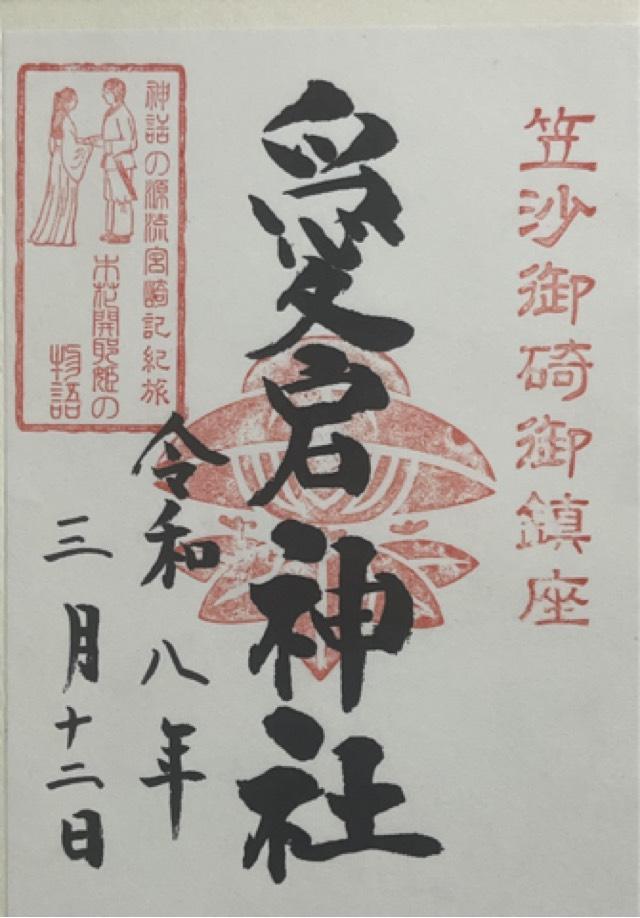 笠沙御碕御鎮座
愛宕神社
令和八年
三月十二日
神話の源流宮崎記紀旅
木花開耶姫の
物語